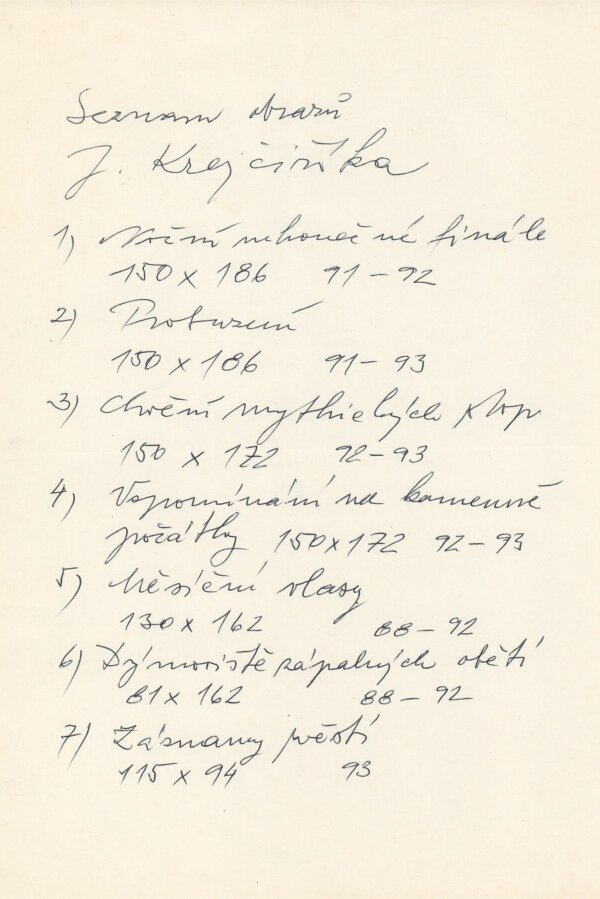 Seznam obrazů
J. Krejčiříka
1) Noční nekonečné finále
150 x 186 91 – 92
2) Probuzení
150 x 186 91 – 93
3) Chvění mythických stop
150 x 172 92 – 93
4) Vzpomínání na kamenné
počátky 150 x 172 92 – 93
5) Měsíční vlasy
130 x 162 88 – 92
6) zápalných obětí
81 x 162 88 – 92
7) Záznamy
115 x 94 93